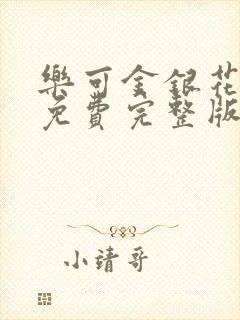 樂可金銀花
免費完整版
小靖哥